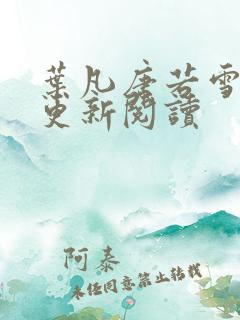 葉凡唐若雪
更新閱讀
阿泰
未經同意禁止轉載